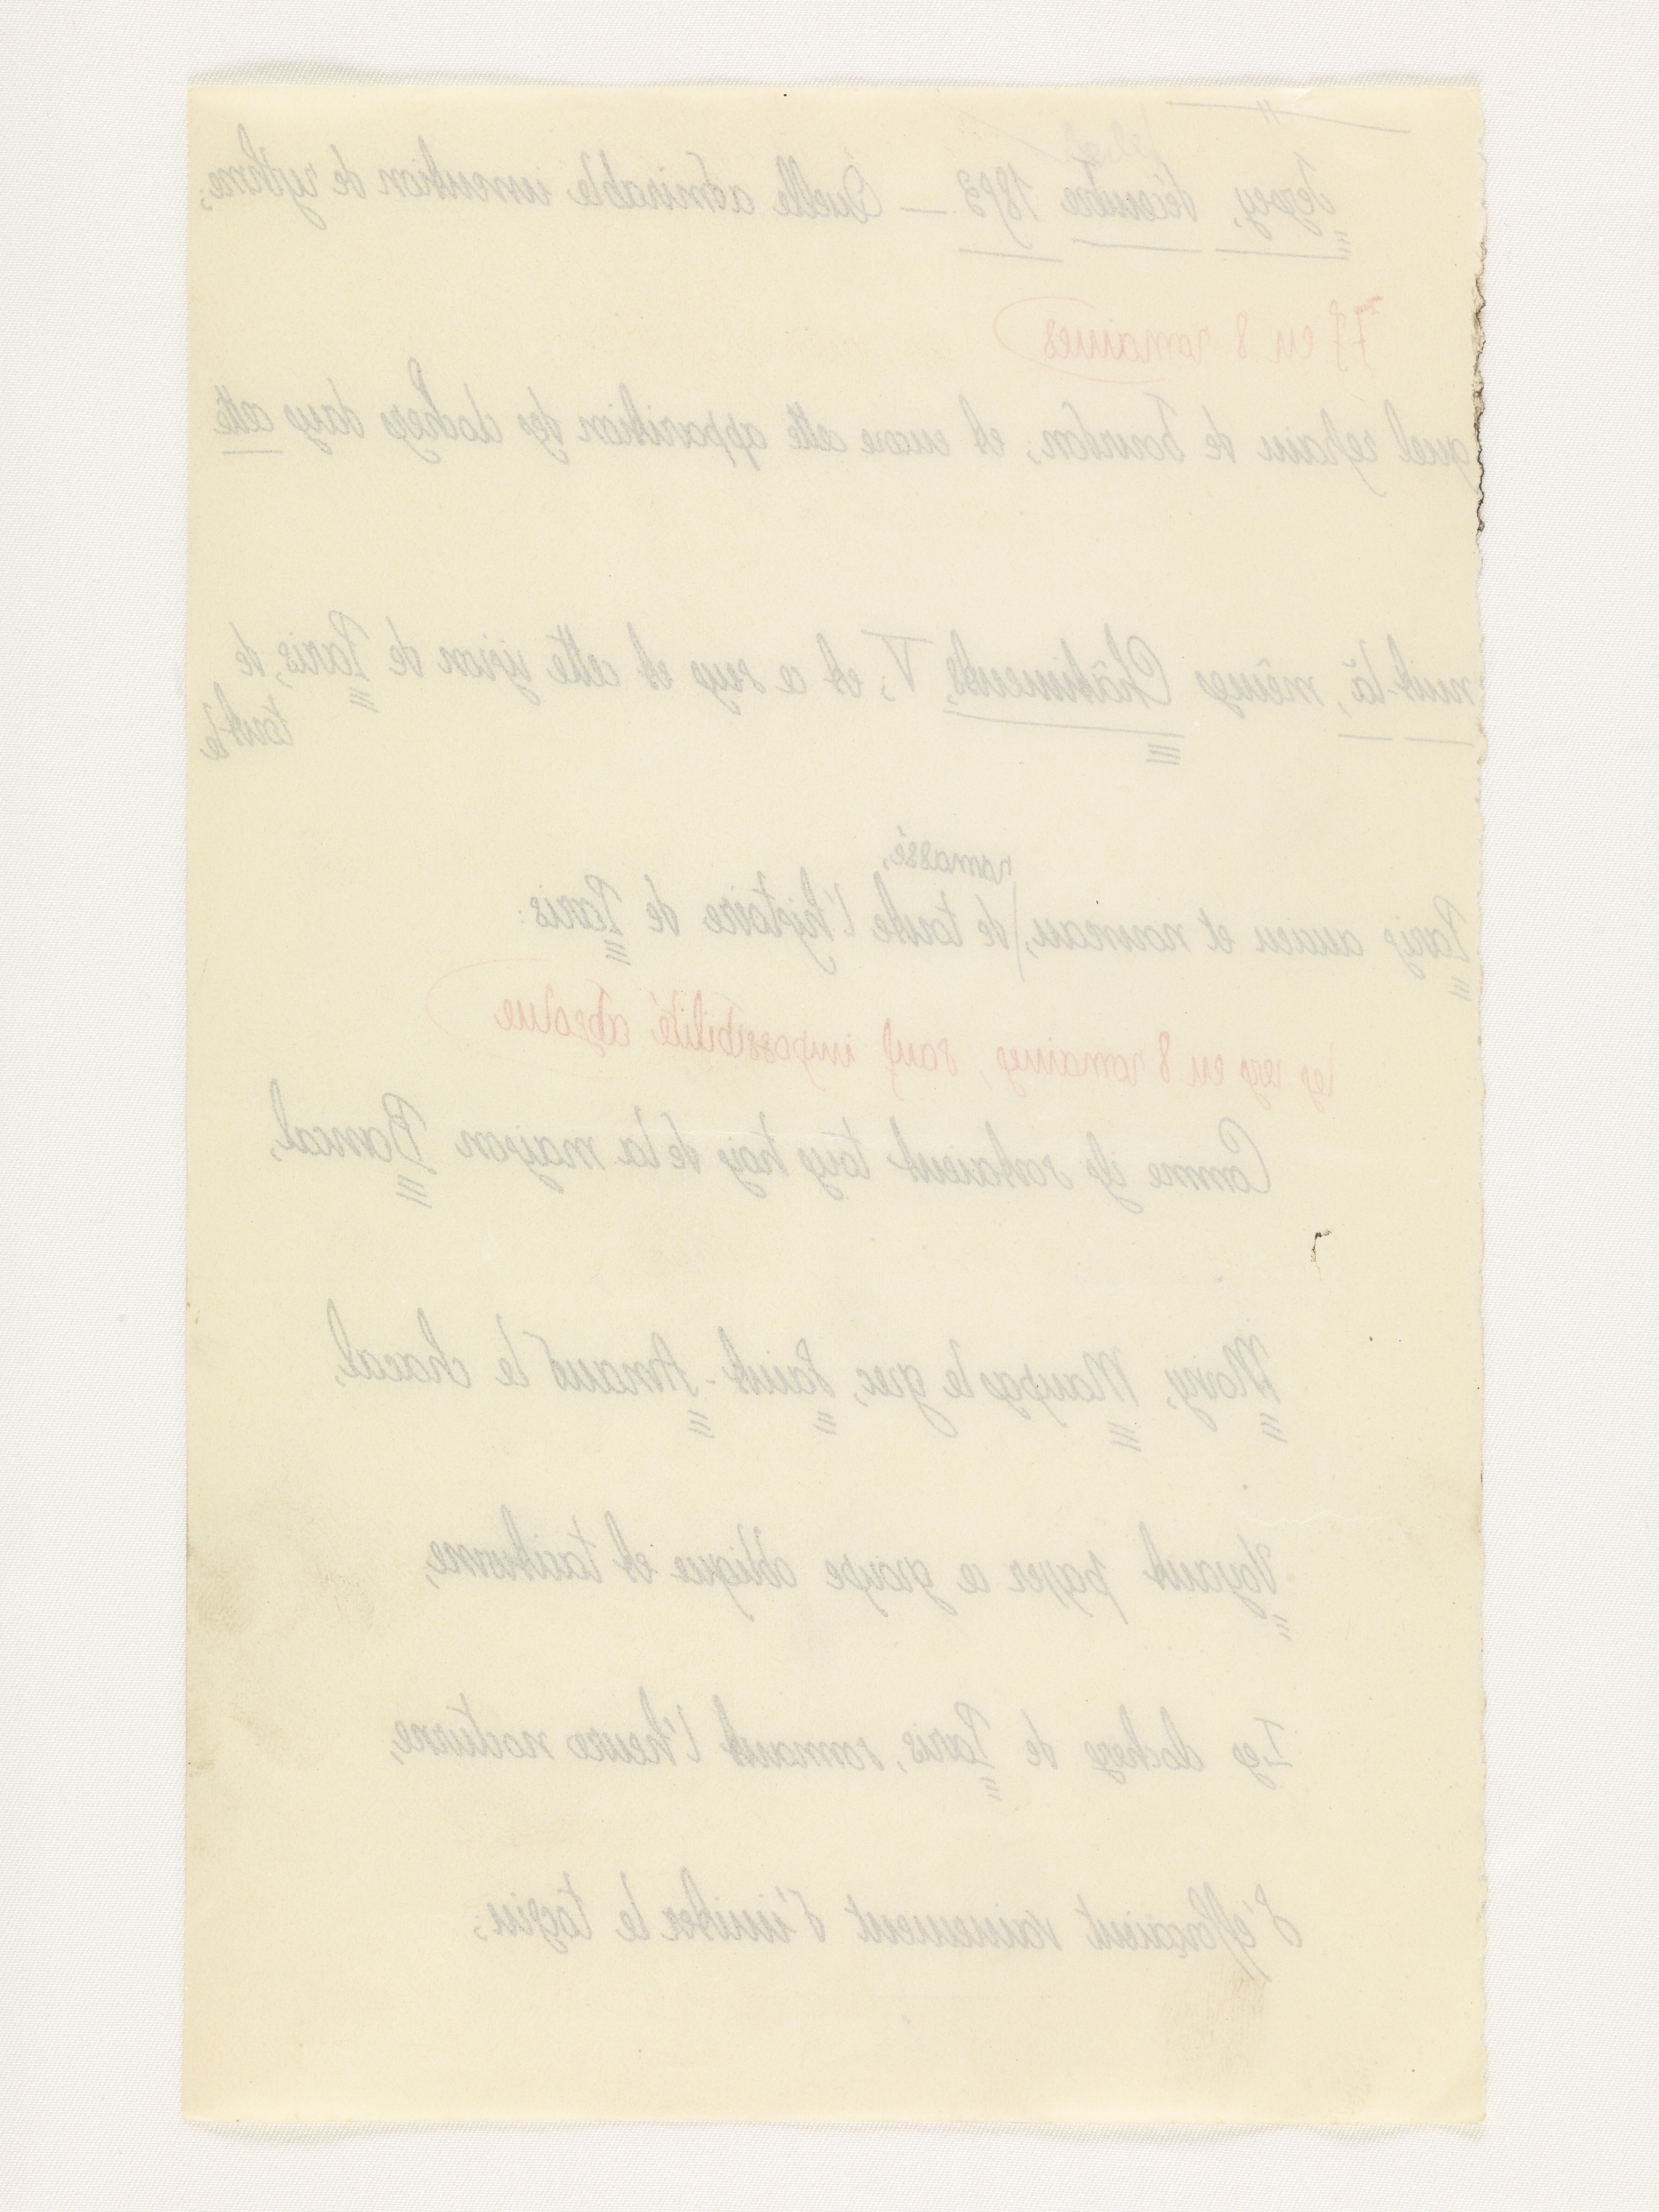 Jersey, décembre 1853 — Quelle admirable invention de rythme;
77 en 8 romaines
quel refrain de bourdon; et encore cette apparition des clochers dans cette
nuit-là, mêmes Châtiments, V; et ce sens et cette vision de Paris, de
tout le
ramassé,
Paris ancien et nouveau, de toute l'histoire de Paris:
les vers en 8 romaines, sauf impossibilité absolue
Comme ils sortaient tous trois de la maison Bancal,
Morny, Maupas le grec, Saint-Arnaud le chacal,
Voyant passer ce groupe oblique et taciturne,
Les clochers de Paris, sonnant l'heure nocturne,
S'efforçaient vainement d'imiter le tocsin;